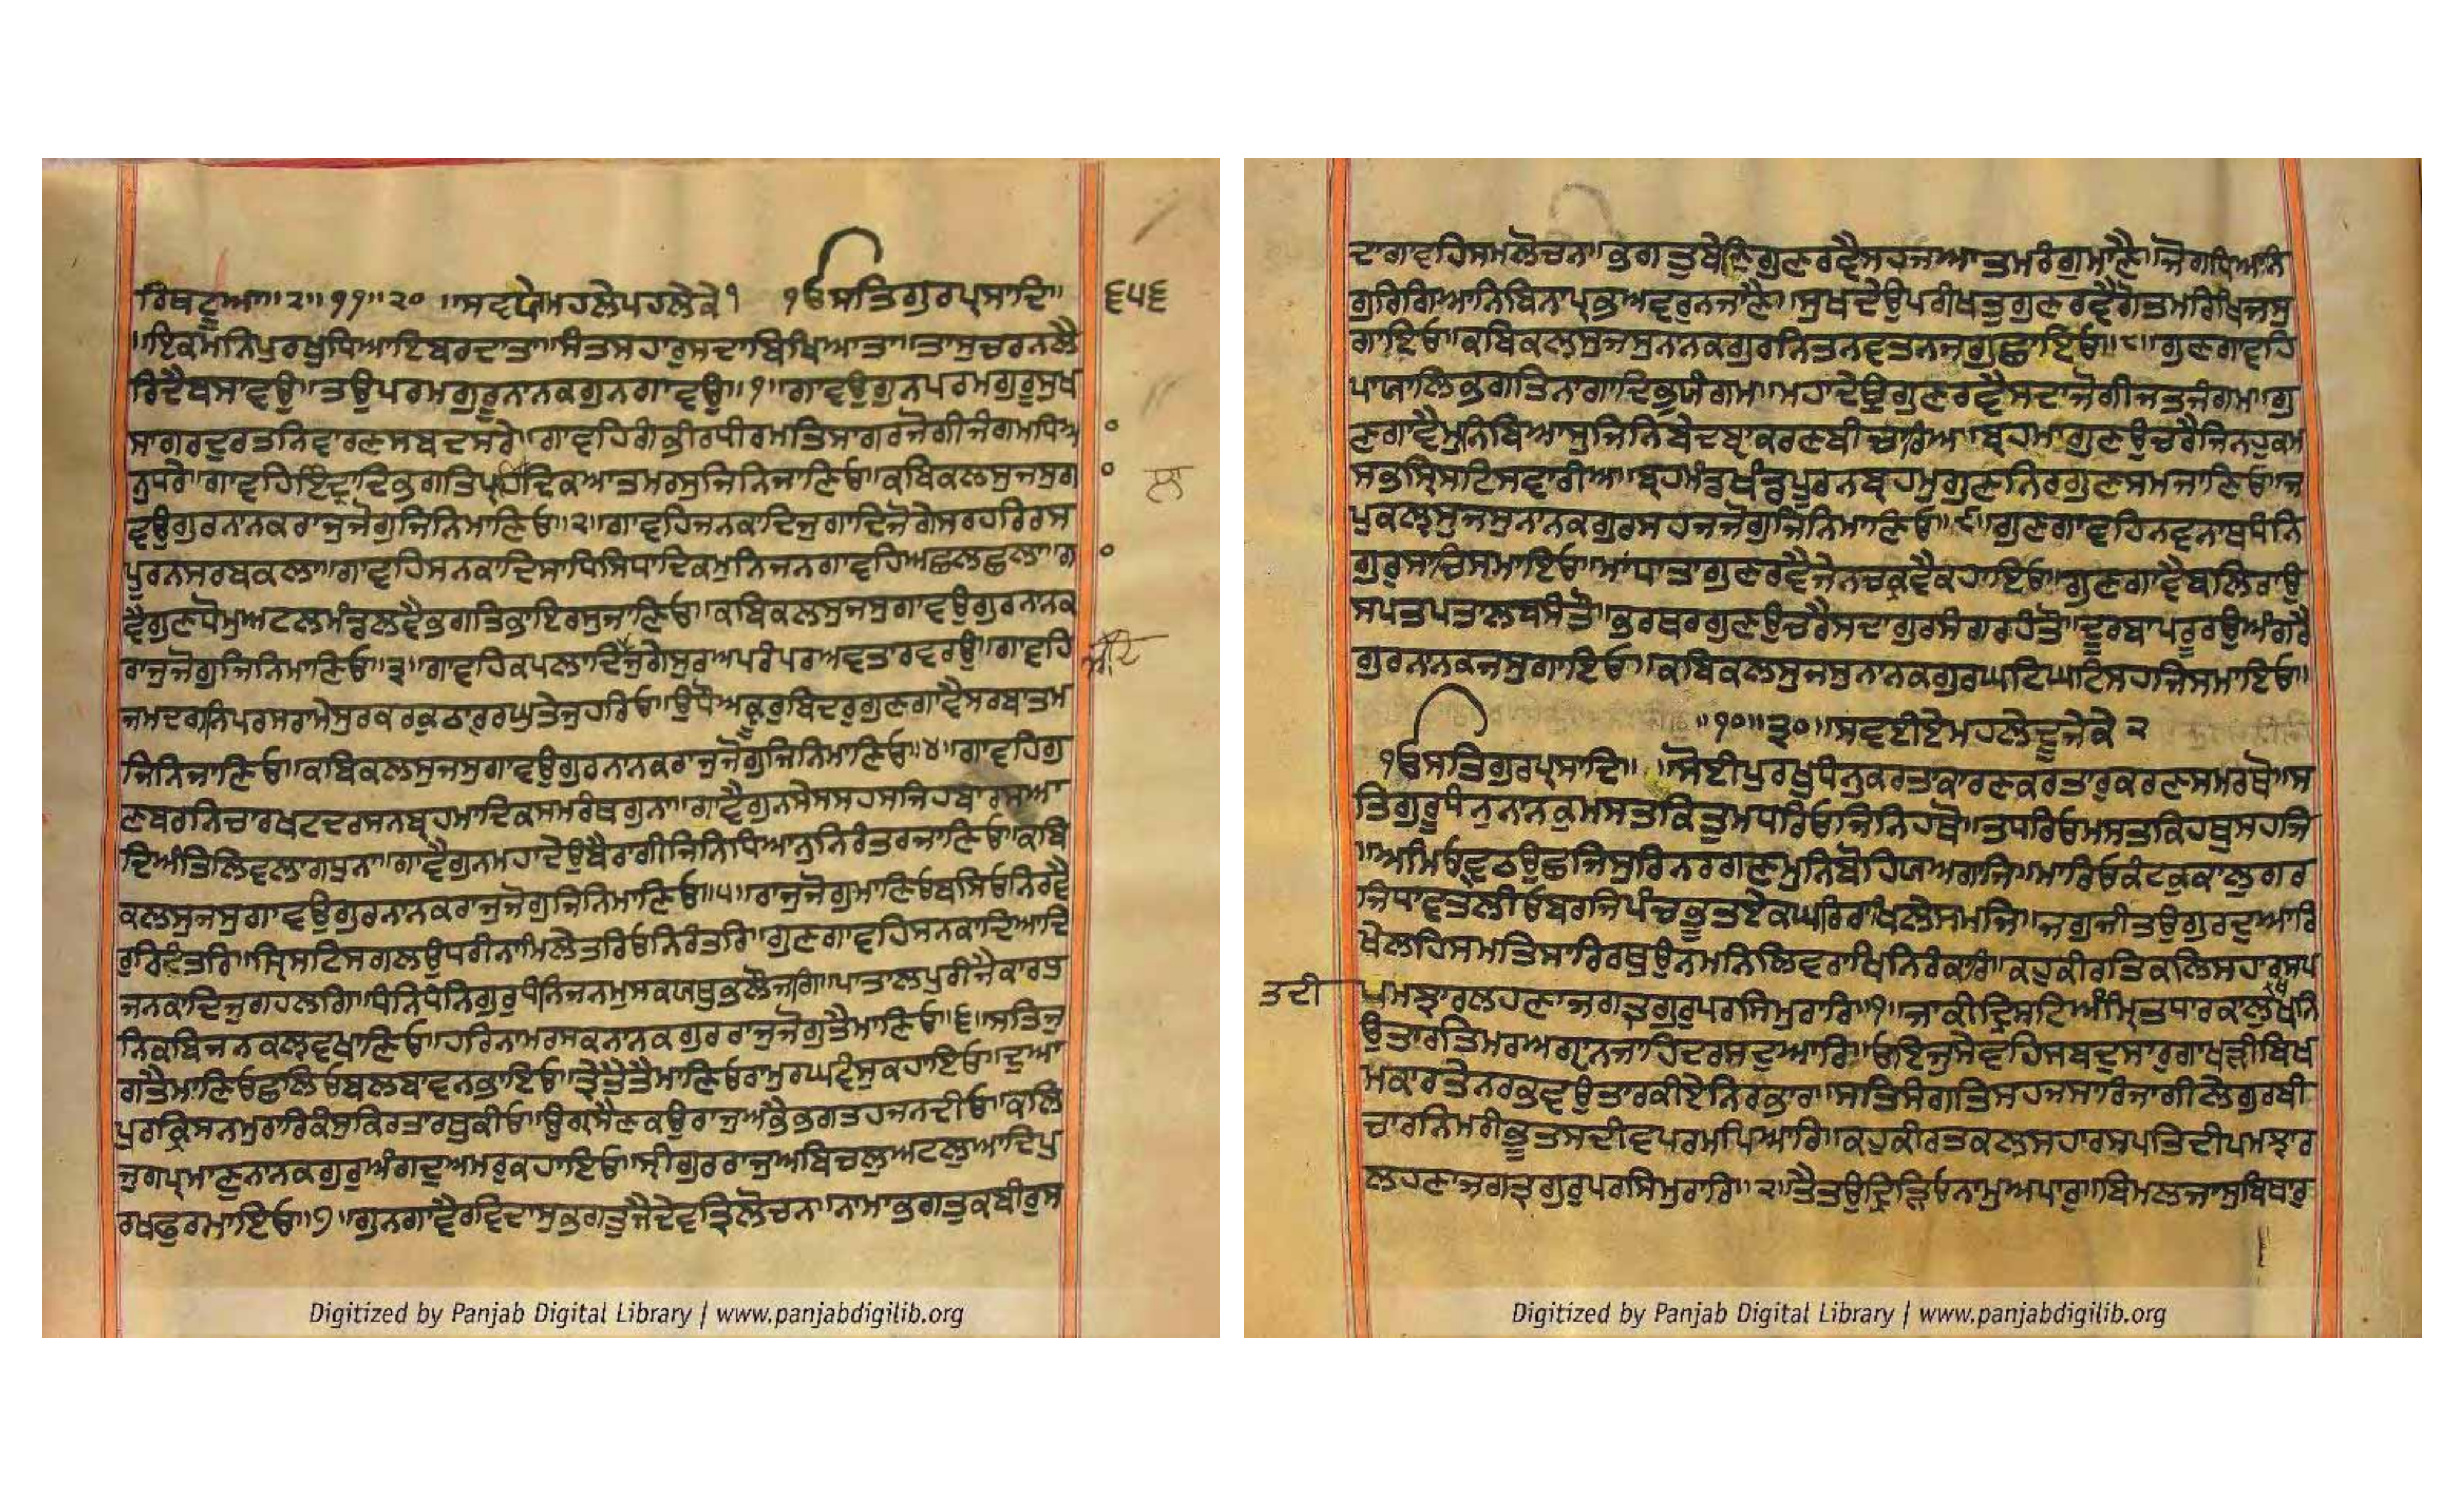 ਰਿਬਟੂਆ॥੨॥੧੧॥੨੦॥ਸਵਯੇਮਹਲੇਪਹਲੇਕੇ੧ ੴਸਤਿਗੁਰਪ੍ਰਸਾਦਿ॥
੬੫੬
॥ਇਕਮਨਿਪੁਰਖੁਧਿਆਇਬਰਦਾਤਾ॥ਸੰਤਸਹਾਰੁਸਦਾਬਿਖਿਆਤਾ॥ਤਾਸੁਚਰਨਲੈ
ਰਿਦੈਬਸਾਵਉ॥ਤਉਪਰਮਗੁਰੂਨਾਨਕਗੁਨਗਾਵਉ॥੧॥ਗਾਵਉਗੁਨਪਰਮਗੁਰੂਸੁਖ
ਸਾਗਰਦੁਰਤਨਿਵਾਰਣਸਬਦਸਰੇ॥ਗਾਵਹਿਗੰਭੀਰਧੀਰਮਤਿਸਾਗਰਜੋਗੀਜੰਗਮਧਿਆ
ਨੁਧਰੇ॥ਗਾਵਹਿਇੰਦ੍ਰਾਦਿਭਗਤਿਪ੍ਰਹਿਦਿਕਆਤਮਰਸੁਜਿਨਿਜਾਣਿਓ॥ਕਬਿਕਲਸੁਜਸੁਗਾ
ਵਉਗੁਰਨਾਨਕਰਾਜੁਜੋਗੁਜਿਨਿਮਾਣਿਓ॥੨॥ਗਾਵਹਿਜਨਕਾਦਿਜੁਗਾਦਿਜੋਗੇਸਰਹਰਿਰਸ
ਪੂਰਨਸਰਬਕਲਾ॥ਗਾਵਹਿਸਨਕਾਦਿਸਾਧਿਸਿਧਾਦਿਕਮੁਨਿਜਨਗਾਵਹਿਅਛਲਛਲਾ॥ਗਾ
ਵੈਗੁਣਧੋਮੁਅਟਲਮੰਡਲਵੈਭਗਤਿਭਾਇਰਸੁਜਾਣਿਓ॥ਕਬਿਕਲਸੁਜਸੁਗਾਵਉਗੁਰਨਾਨਕ
ਰਾਜੁਜੋਗੁਜਿਨਿਮਾਣਿਓ॥੩॥ਗਾਵਹਿਕਪਲਾਦਿਜੁਗੇਸੁਰਅਪਰੰਪਰਅਵਤਾਰਵਰਉ॥ਗਾਵਹਿ
ਜਮਦਗਨਿਪਰਸਰਾਮੇਸੁਰਕਰਕੁਠਾਰੁਰਘੁਤੇਜੁਹਰਿਓ॥ਉਧੌਅਕ੍ਰੂਰੁਬਿਦਰੁਗੁਣਗਾਵੈਸਰਬਾਤਮ
ਜਿਨਿਜਾਣਿਓ॥ਕਬਿਕਲਸੁਜਸੁਗਾਵਉਗੁਰਨਾਨਕਰਾਜੁਜੋਗੁਜਿਨਿਮਾਣਿਓ॥੪॥ਗਾਵਹਿਗੁ
ਣਬਰਨਿਚਾਰਖਟਦਰਸਨਬ੍ਰਹਮਾਦਿਕਸਮਰੰਥਗੁਨਾ॥ਗਾਵੈਗੁਨਸੇਸਸਹਸਜਿਹਬਾਰਸਆ
ਦਿਅੰਤਿਲਿਵਲਾਗਧੁਨਾ॥ਗਾਵੈਗੁਨਮਹਾਦੇਉਬੈਰਾਗੀਜਿਨਿਧਿਆਨੁਨਿਰੰਤਰਜਾਣਿਓ॥ਕਬਿ
ਕਲਸੁਜਸੁਗਾਵਉਗੁਰਨਾਨਕਰਾਜੁਜੋਗੁਜਿਨਿਮਾਣਿਓ॥੫॥ਰਾਜੁਜੋਗੁਮਾਣਿਓਬਸਿਓਨਿਰਵੈ
ਰੁਰਿਦੰਤਰਿ॥ਸ੍ਰਿਸਟਿਸਗਲਉਧਰੀਨਾਮਿਲੇਤਰਿਓਨਿਰੰਤਰਿ॥ਗੁਣਗਾਵਹਿਸਨਕਾਦਿਆਦਿ
ਜਨਕਾਦਿਜੁਗਹਲਗਿ॥ਧੰਨਿਧੰਨਿਗੁਰੁਧੰਨਿਜਨਮੁਸਕਯਥੁਭਲੌਜਗਿ॥ਪਾਤਾਲਪੁਰੀਜੈਕਾਰਧੁ
ਨਿਕਬਿਜਨਕਲਵਖਾਣਿਓ॥ਹਰਿਨਾਮਰਸਕਨਾਨਕਗੁਰਰਾਜੁਜੋਗੁਤੈਮਾਣਿਓ॥੬॥ਸਤਿਜੁ
ਗਤੈਮਾਣਿਓਛਲਿਓਬਲਬਾਵਨਭਾਇਓ॥ਤ੍ਰੇਤੈਤੈਮਾਣਿਓਰਾਮੁਰਘਵੰਸੁਕਹਾਇਓ॥ਦੁਆ
ਪੁਰਕ੍ਰਿਸਨਮੁਰਾਰਿਕੰਸੁਕਿਰਤਾਰਥੁਕੀਓ॥ਉਗ੍ਰਸੈਣਕਉਰਾਜੁਅਭੈਭਗਤਹਜਨਦੀਓ॥ਕਲਿ
ਜੁਗਪ੍ਰਮਾਣੁਨਾਨਕਗੁਰੁਅੰਗਦੁਅਮਰੁਕਹਾਇਓ॥ਸ੍ਰੀਗੁਰਰਾਜੁਅਬਿਚਲੁਅਟਲੁਆਦਿਪੁ
ਰਖਫੁਰਮਾਇਓ॥੭॥ਗੁਨਗਾਵੈਰਵਿਦਾਸੁਭਗਤੁਜੈਦੇਵਤ੍ਰਿਲੋਚਨਾ॥ਨਾਮਾਭਗਤੁਕਬੀਰੁਸ
Digitized by Panjab Digital Library | www.panjabdigilib.org
ਦਾਗਾਵਹਿਸਮਲੋਚਨਾ॥ਭਗਤੁਬੇਣਿਗੁਣਰਵੈਸਹਜਆਤਮਰੰਗੁਮਾਣੈ॥ਜੋਗਧਿਆਨਿ
ਗੁਰਿਗਿਆਨਿਬਿਨਾਪ੍ਰਭਅਵਰੁਨਜਾਣੈ॥ਸੁਖਦੇਉਪਰੀਖਤੁਗੁਣਰਵੈਗੋਤਮਰਿਖਿਜਸੁ
ਗਾਇਓ॥ਕਬਿਕਲਸੁਜਸੁਨਾਨਕਗੁਰਨਿਤਨਵਤਨਜਗੁਛਾਇਓ॥੮॥ਗੁਣਗਾਵਹਿ
ਪਾਯਾਲਿਭਗਤਿਨਾਗਾਦਿਭੁਯੰਗਮ॥ਮਹਾਦੇਉਗੁਣਰਵੈਸਦਾਜੋਗੀਜਤਜੰਗਮ॥ਗੁ
ਣਗਾਵੈਮੁਨਿਬਿਆਸੁਜਿਨਿਬੇਦਬ੍ਯਾਕਰਣਬੀਚਾਰਿਆ॥ਬ੍ਰਹਮਾਗੁਣਉਚਰੈਜਿਨਹੁਕਮ
ਸਭਸ੍ਰਿਸਟਿਸਵਾਰੀਆ॥ਬ੍ਰਹਮੰਡਖੰਡਪੂਰਨਬ੍ਰਹਮੁਗੁਣਨਿਰਗੁਣਸਮਜਾਣਿਓ॥ਜ
ਪੁਕਲਸੁਜਸੁਨਾਨਕਗੁਰਸਹਜਜੋਗੁਜਿਨਿਮਾਣਿਓ॥੯॥ਗੁਣਗਾਵਹਿਨਵਨਾਥਧੰਨਿ
ਗੁਰੁਸਾਚਿਸਮਾਇਓ॥ਮਾਂਧਾਤਾਗੁਣਰਵੈਜੇਨਚਕ੍ਰਵੈਕਹਾਇਓ॥ਗੁਣਗਾਵੈਬਲਿਰਾਉ
ਸਪਤਪਤਾਲਬਸੰਤੌ॥ਭਰਥਰਗੁਣਉਚਰੈਸਦਾਗੁਰਸੰਗਰਹੰਤੌ॥ਦੂਰਬਾਪਰੂਰਉਅੰਗਰੈ
ਗੁਰਨਾਨਕਜਸੁਗਾਇਓ॥ਕਬਿਕਲਸੁਜਸੁਨਾਨਕਗੁਰਘਟਿਘਟਿਸਹਜਿਸਮਾਇਓ॥
॥੧੦॥੩੦॥ਸਵਈਏਮਹਲੇਦੂਜੇਕੇ੨
ੴਸਤਿਗੁਰਪ੍ਰਸਾਦਿ॥॥ਸੋਈਪੁਰਖੁਧੰਨੁਕਰਤਾਕਾਰਣਕਰਤਾਰੁਕਰਣਸਮਰਥੋ॥ਸ
ਤਿਗੁਰੂਧੰਨੁਨਾਨਕੁਮਸਤਕਿਤੁਮਧਰਿਓਜਿਨਿਹਥੋ॥ਤਧਰਿਓਮਸਤਕਿਹਥੁਸਹਜਿ
॥ਅਮਿਓਵੁਠਉਛਜਿਸੁਰਿਨਰਗਣਮੁਨਿਬੋਹਿਯਅਗਾਜਿ॥ਮਾਰਿਓਕੰਟਕੁਕਾਲੁਗਰ
ਜਿਧਾਵਤੁਲੀਓਬਰਜਿਪੰਚਭੂਤਏਕਘਰਿਰਾਖਿਲੇਸਮਜਿ॥ਜਗੁਜੀਤਉਗੁਰਦੁਆਰਿ
ਖੇਲਹਿਸਮਤਿਸਾਰਿਰਥੁਉਨਮਨਿਲਿਵਰਾਖਿਨਿਰੰਕਾਰਿ॥ਕਹੁਕੀਰਤਿਕਲਿਸਹਾਰਸਪ
ਤਦੀ
ਪਮਝਾਰਲਹਣਾਜਗਤ੍ਰਗੁਰੁਪਰਸਿਮੁਰਾਰਿ॥੧॥ਜਾਕੀਦ੍ਰਿਸਟਿਅੰਮ੍ਰਿਤਧਾਰਕਾਲੁਖਖਨਿ
ਉਤਾਰਤਿਮਰਅਗ੍ਯਾਨਜਾਹਿਦਰਸਦੁਆਰਿ॥ਓਇਜੁਸੇਵਹਿਸਬਦੁਸਾਰੁਗਾਖੜੀਬਿਖ
ਮਕਾਰਤੇਨਰਭਵਉਤਾਰਕੀਏਨਿਰਭਾਰ॥ਸਤਿਸੰਗਤਿਸਹਜਸਾਰਿਜਾਗੀਲੇਗੁਰਬੀ
ਚਾਰਨਿਮਰੀਭੂਤਸਦੀਵਪਰਮਪਿਆਰਿ॥ਕਹੁਕੀਰਤਕਲਸਹਾਰਸਪਤਿਦੀਪਮਝਾਰ
ਲਹਣਾਜਗਤ੍ਰਗੁਰੁਪਰਸਿਮੁਰਾਰਿ॥੨॥ਤੈਤਉਦ੍ਰਿੜਿਓਨਾਮੁਅਪਾਰੁ॥ਬਿਮਲਜਾਸੁਬਿਥਾਰੁ
Digitized by Panjab Digital Library | www.panjabdigilib.org